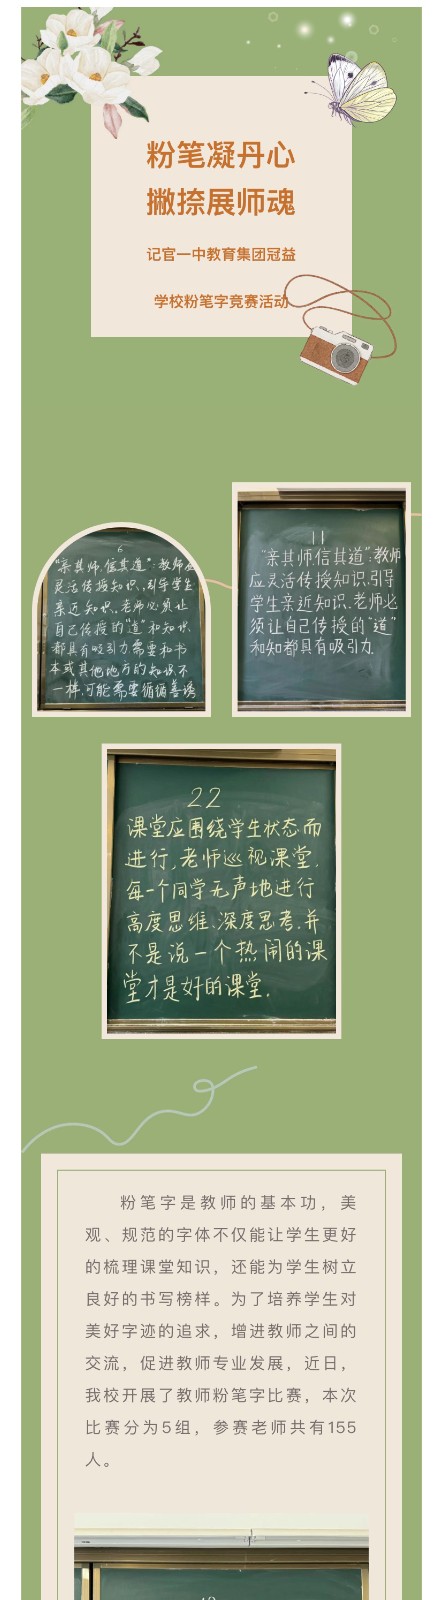 粉笔凝丹心
撇捺展师魂
记官一中教育集团冠益
学校粉笔字竞赛活动
6
“亲其师,信其道”:教师应
灵活传授知识,引导学生
亲近知识、老师必须让
自己传授的“道”和知识
都具有吸引力需要和书
本或其他地方的知识不
一样,可能需要循循善诱
11
“亲其师信其道”:教师
应灵活传授知识,引导
学生亲近知识、老师必
须让自己传授的“道”
和知都具有吸引力
22
课堂应围绕学生状态而
进行,老师巡视课堂,
每一个同学无声地进行
高度思维、深度思考,并
不是说一个热闹的课
堂才是好的课堂.
粉笔字是教师的基本功，美
观、规范的字体不仅能让学生更好
的梳理课堂知识，还能为学生树立
良好的书写榜样。为了培养学生对
美好字迹的追求，增进教师之间的
交流，促进教师专业发展，近日，
我校开展了教师粉笔字比赛，本次
比赛分为5组，参赛老师共有155
人。